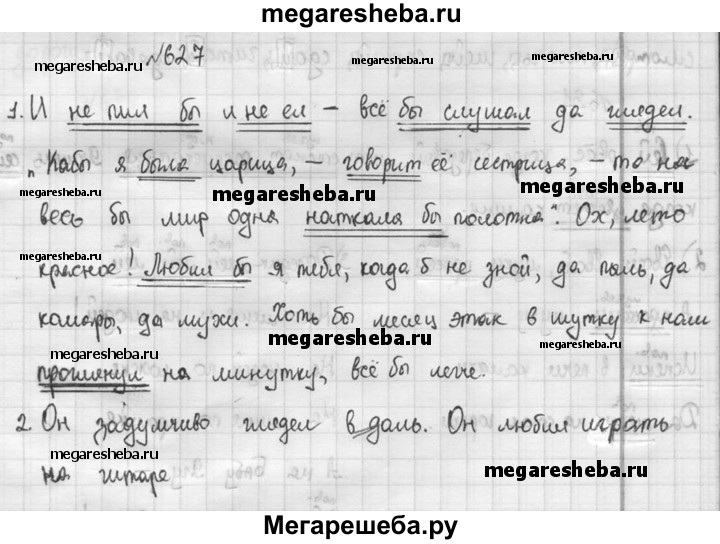 megaresheba.ru
№627
megaresheba.ru
megaresheba.ru
megaresheba.ru
1. И не пил бы и не ел – всё бы слушал да глядел.
megaresheba.ru
megaresheba.ru
„Кабы я была царица, – говорит её сестрица, – то на
megaresheba.ru
megaresheba.ru
весь бы мир одна наткала бы полотна". Ох, лето
megaresheba.ru
megaresheba.ru
красное! Любил бы я тебя, когда б не зной, да пыль, да
комары, да мухи. Хоть бы месяц этак в шутку к нам
megaresheba.ru
megaresheba.ru
megaresheba.ru
проглянул на минутку, всё бы легче.
2. Он задумчиво глядел вдаль. Он любил играть
megaresheba.ru
megaresheba.ru
на гитаре
Мегарешеба.ру